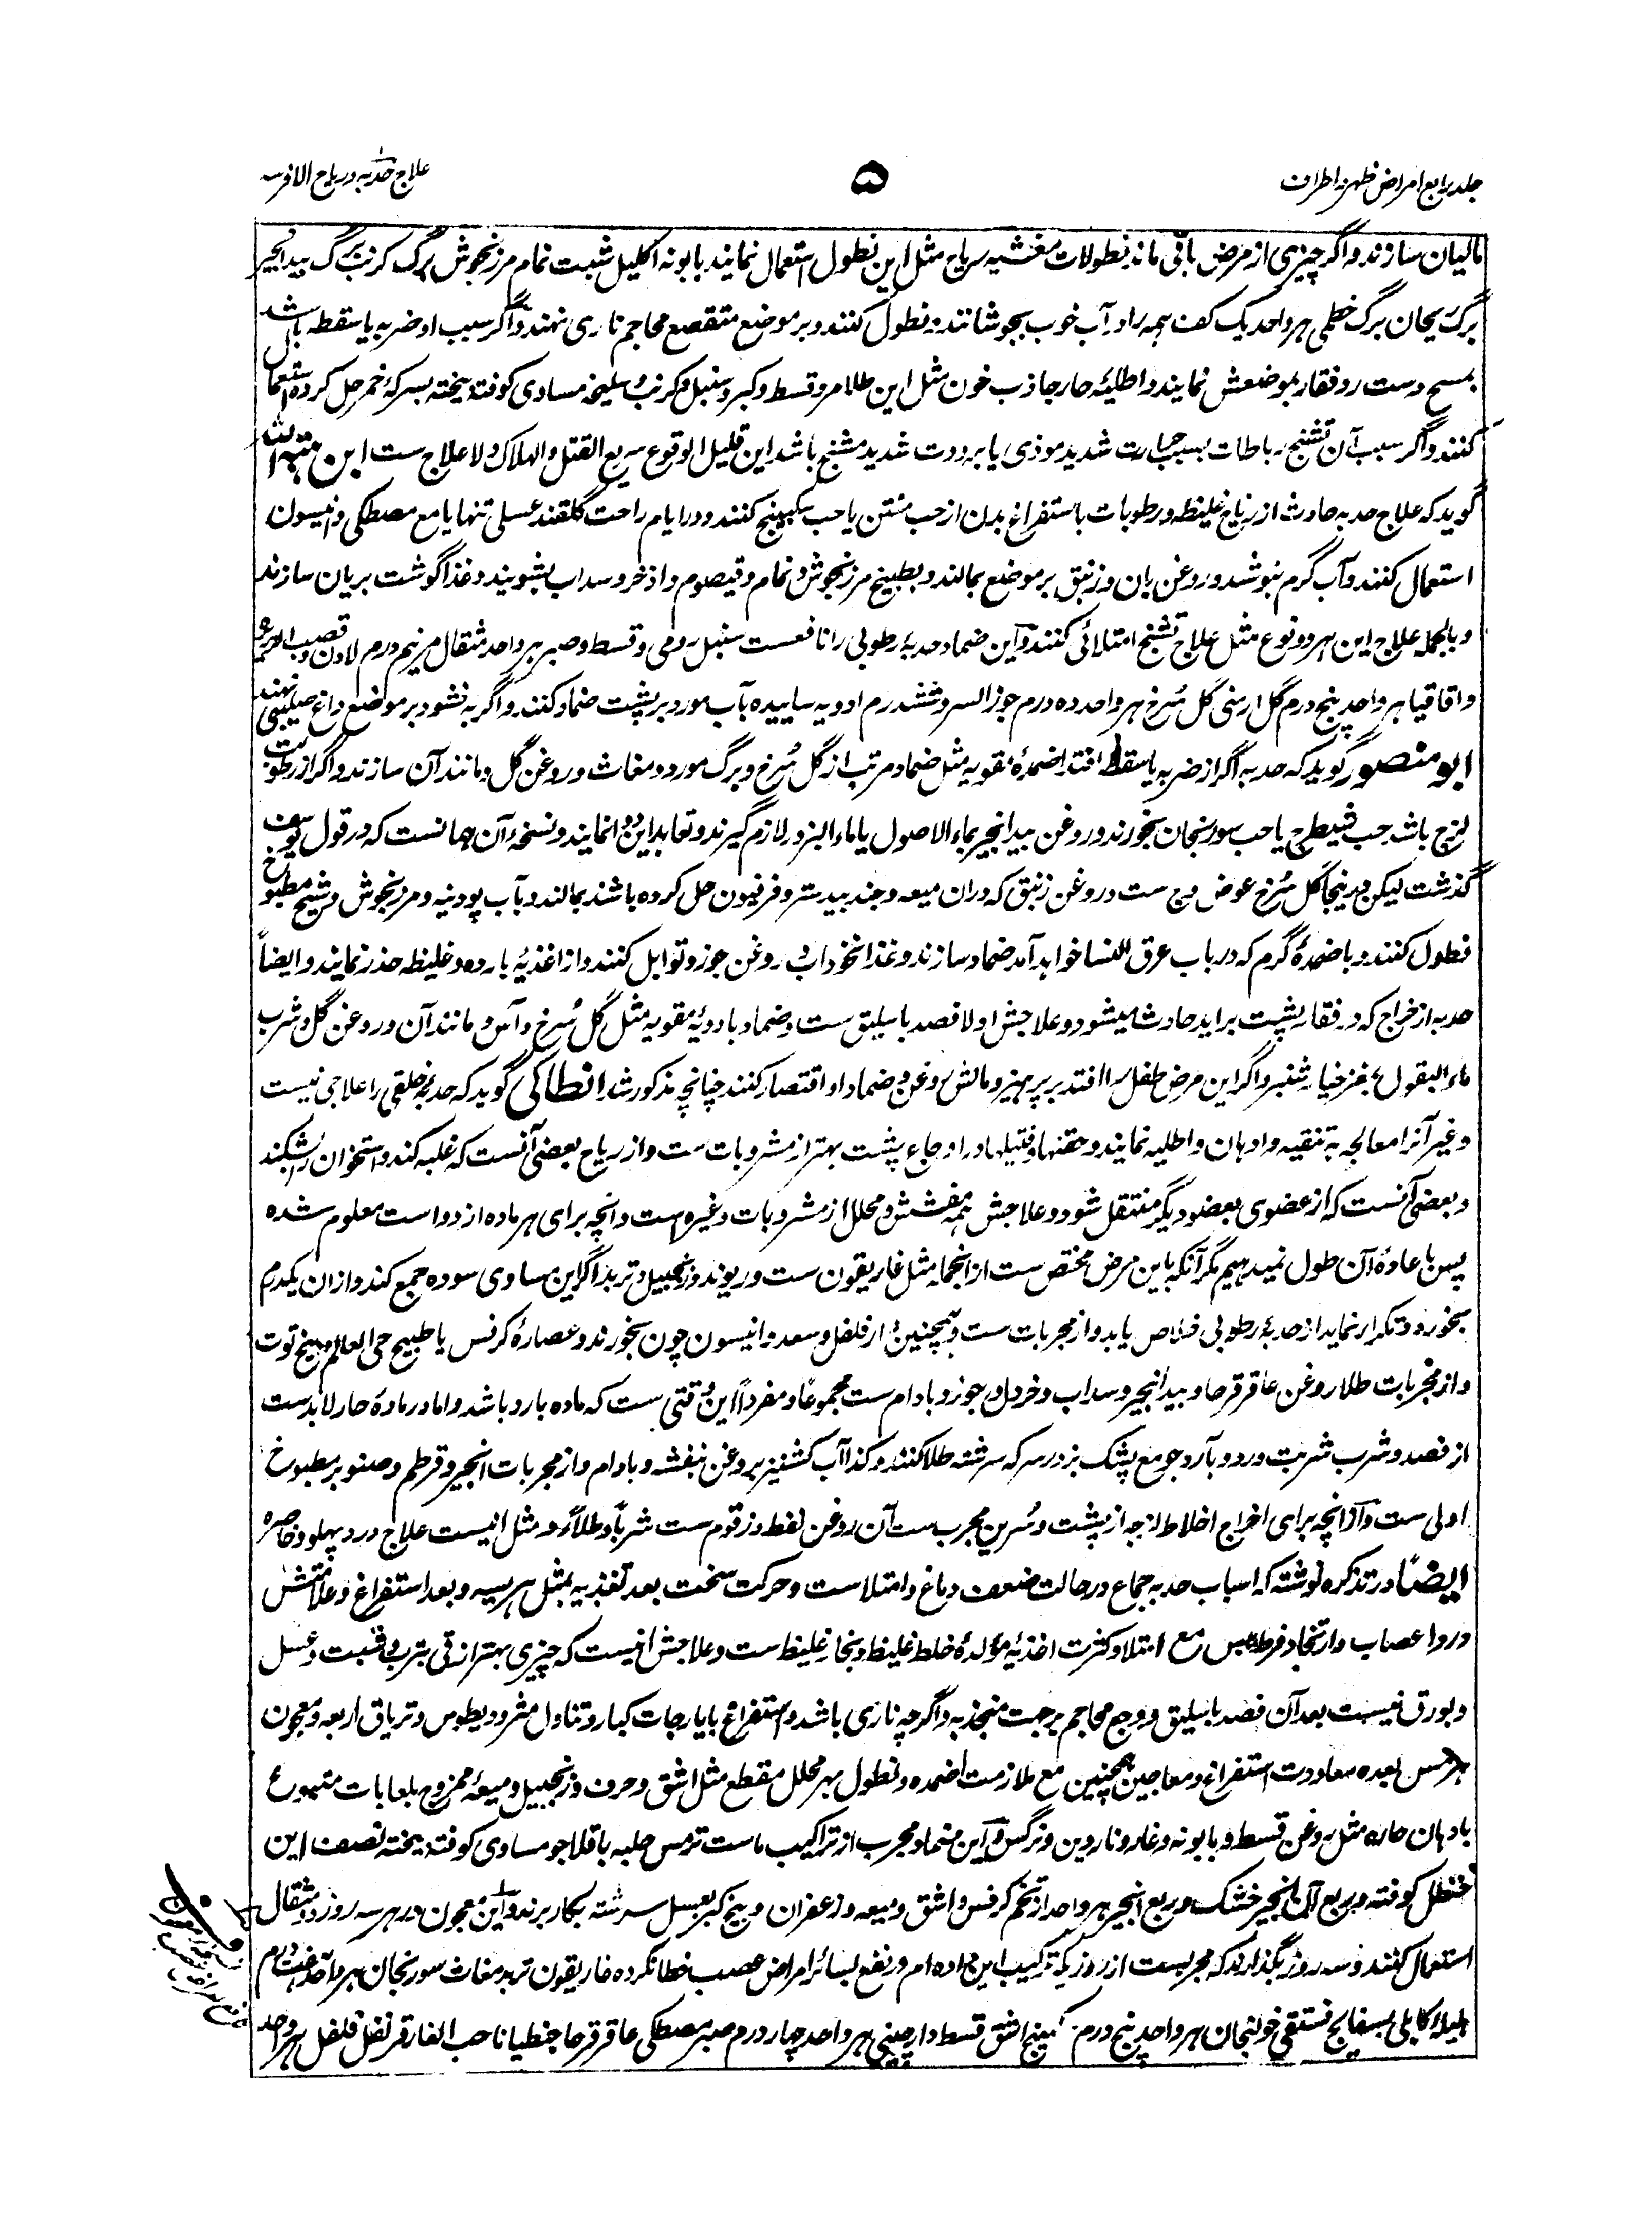 جلد رابع امراض ظهر و اطراف
۵
علاج حدبه و ریاح الافرسه
ماکیان سازند و اگر چیزی از مرض باقی ماند نطولات مفشیه ریاح مثل این نطول استعمال نمایند بابونه اکلیل شبت نمام مرزنجوش برگ کرنب برگ بیدانجیر
برگ ریحان برگ خطمی هر واحد یک کف همه را در آب خوب بجوشانند و نطول کنند و بر موضع متقصع محاجم ناری نهند و اگر سبب او ضربه یا سقطه باشد
بمسح دست رد فقار بموضعش نمایند و اطلیهٔ حار جاذب خون مثل این طلا مر و قسط و کبر و سنبل و کرنب و سلیخه مساوی کوفته بیخته بسرکهٔ خمر حل کرده استعمال
کنند و اگر سبب آن تشنج رباطات بسبب حرارت شدید موذی یا برودت شدید مشنج باشد این قلیل الوقوع سریع القتل و الهلاک و لا علاج ست ابن هبة الله
گوید که علاج حدبه حادث از ریاح غلیظه و رطوبات باستفراغ بدن از حب منتن یا حب سکبینج کنند و در ایام راحت گلقند عسلی تنها یا مع مصطکی و انیسون
استعمال کنند و آب گرم بنوشند و روغن بان و زنبق بر موضع بمالند و بطبیخ مرزنجوش و نمام و قیصوم و اذخر و سداب بشویند و غذا گوشت بریان سازند
و بالجمله علاج این هر دو نوع مثل علاج تشنج امتلائی کنند و این ضماد حدبهٔ رطوبی را نافعست سنبل رومی و قسط و صبر هر واحد مثقال مر نیم درم لادن و قصب الذریره
و اقاقیا هر واحد پنج درم گل ارمنی گل سرخ هر واحد ده درم جوز السرو ششدرم ادویه ساییده بآب مورد بر پشت ضماد کنند و اگر به نشود بر موضع داغ صلیبی نهند
ابو منصور گوید که حدبه اگر از ضربه یا سقطه افتد اضمدهٔ مقویه مثل ضماد مرتب از گل سرخ و برگ مورد و مغاث و روغن گل و مانند آن سازند و اگر از رطوبت
لزج باشد حب شیطرج یا حب سورنجان بخورند و روغن بیدانجیر بماء الاصول یا ماء البزور لازم گیرند و تعاهد این دوا نمایند و نسخهٔ آن همانست که در قول یوسف
گذشت لیکن درینجا گل سرخ عوض وج ست و روغن زنبق که در ان میعه و جندبیدستر و فرفیون حل کرده باشند بمالند و بآب پودنیه و مرزنجوش و شیح مطبوخ
نطول کنند و باضمدهٔ گرم که در باب عرق النسا خواهد آمد ضماد سازند و غذا نخوداب و روغن جوز و توابل کنند و از اغذیهٔ بارده و غلیظه حذر نمایند و ایضاً
حدبه از خراج که در فقار پشت براید حادث میشود و علاجش اولا فصد باسلیق ست و ضماد بادویهٔ مقویه مثل گل سرخ و آس و مانند آن و روغن گل و شرب
ماء البقول بمغز خیارشنبر و اگر این مرض طفل را افتد بر پرهیز و مالش روغن و ضماد او اقتصار کنند چنانچه مذکور شد انطاکی گوید که حدبهٔ خلقی را علاجی نیست
و غیر آنرا معالجه به تنقیه و ادهان و اطلیه نمایند و حقنها و فتیلها در اوجاع پشت بهتر از مشروبات ست و از ریاح بعضی آنست که غلبه کند و استخوان را بشکند
و بعضی آنست که از عضوی بعضو دیگر منتقل شود و علاجش همه مفشش و محلل از مشروبات و غیره ست و آنچه برای هر ماده از دواست معلوم شده
پس باعادهٔ آن طول نمیدهیم مگر آنکه باین مرض مختص ست از انجمله مثل غاریقون ست و ریوند و زنجبیل و تربد اگر این مساوی سوده جمع کند و از ان یکدرم
بخورد و تکرار نماید از حدبهٔ رطوبی خلاص یابد و از مجربات ست و همچنین از فلفل و سعد و انیسون چون بخورند و عصارهٔ کرفس یا طبیخ حی العالم و بیخ توت
و از مجربات طلا روغن عاقرقرحا و بیدانجیر و سداب و خردل و جوز و بادام ست مجموعاً و مفرداً این وقتی ست که ماده بارد باشد و اما در مادهٔ حار لابدست
از فصد و شرب شربت ورد و بآرد جو مع پشک بز در سرکه سرشته طلا کنند و کذا آب کشنیز بروغن بنفشه و بادام و از مجربات انجیر و قرطم و صنوبر مطبوخ
اولی ست و از انچه برای اخراج اخلاط لزجه از پشت و سرین مجرب ست آن روغن نفط و زقوم ست شرباً و طلاءً و مثل اینست علاج درد پهلو و خاصره
ایضاً در تذکره نوشته که اسباب حدبه جماع در حالت ضعف دماغ و امتلاست و حرکت سخت بعد تغذیه بمثل هریسه و بعد استفراغ و علامتش
درد اعصاب و ارتخا و فرط یبس مع امتلا و کثرت اغذیهٔ مولدهٔ خلط غلیظ و بخار غلیظ ست و علاجش اینست که چیزی بهتر از قی بترب و شبت و عسل
و بورق نیست بعد آن فصد باسلیق و وضع محاجم بر جهت منجذبه و اگرچه ناری باشد و استفراغ بایارجات کبار و تناول مثرودیطوس و تریاق اربعه و معجون
هرمس بعده معاودت استفراغ و معاجین همچنین مع ملازمت اضمده و نطول بهر محلل مقطع مثل اشق و حرف و زنجبیل و میعهٔ ممزوج بلعابات متبوع
بادهان حاره مثل روغن قسط و بابونه و غار و ناردین و نرگس و این ضماد مجرب از تراکیب ماست ترمس حلبه باقلا جو مساوی کوفته بیخته نصف این
حنظل کوفته و بربع آن انجیر خشک و بربع انجیر هر واحد از تخم کرفس و اشق و میعه و زعفران و بیخ کبر بعسل سرشته بکار برند و این معجون در هر سه روز دو مثقال
استعمال کنند و سه روز بگذارند که مجربست از روزیکه ترکیب این داده ام در نفع بسائر امراض عصب خطا نکرده غاریقون تربد مغاث سورنجان هر واحد هشت درم
هلیله کابلی بسفایج فستقی خولنجان هر واحد پنج درم سکبینج اشق قسط دارچینی هر واحد چهار درم صبر مصطکی عاقرقرحا جنطیانا حب الغار قرنفل فلفل هر واحد